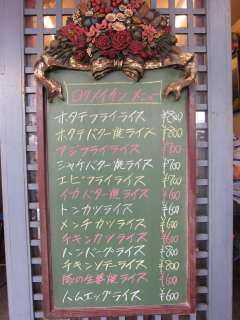 ロケメイチン メニュー
ホタテフライライス ¥800
ホタテバター焼ライス ¥800
アジフライライス ¥700
シャケバター焼ライス ¥700
エビフライライス ¥700
イカバター焼ライス ¥600
トンカツライス ¥600
メンチカツライス ¥600
チキンカツライス ¥600
ハンバーグライス ¥800
チキンソテーライス ¥800
豚の生姜焼ライス ¥600
ハムエッグライス ¥600